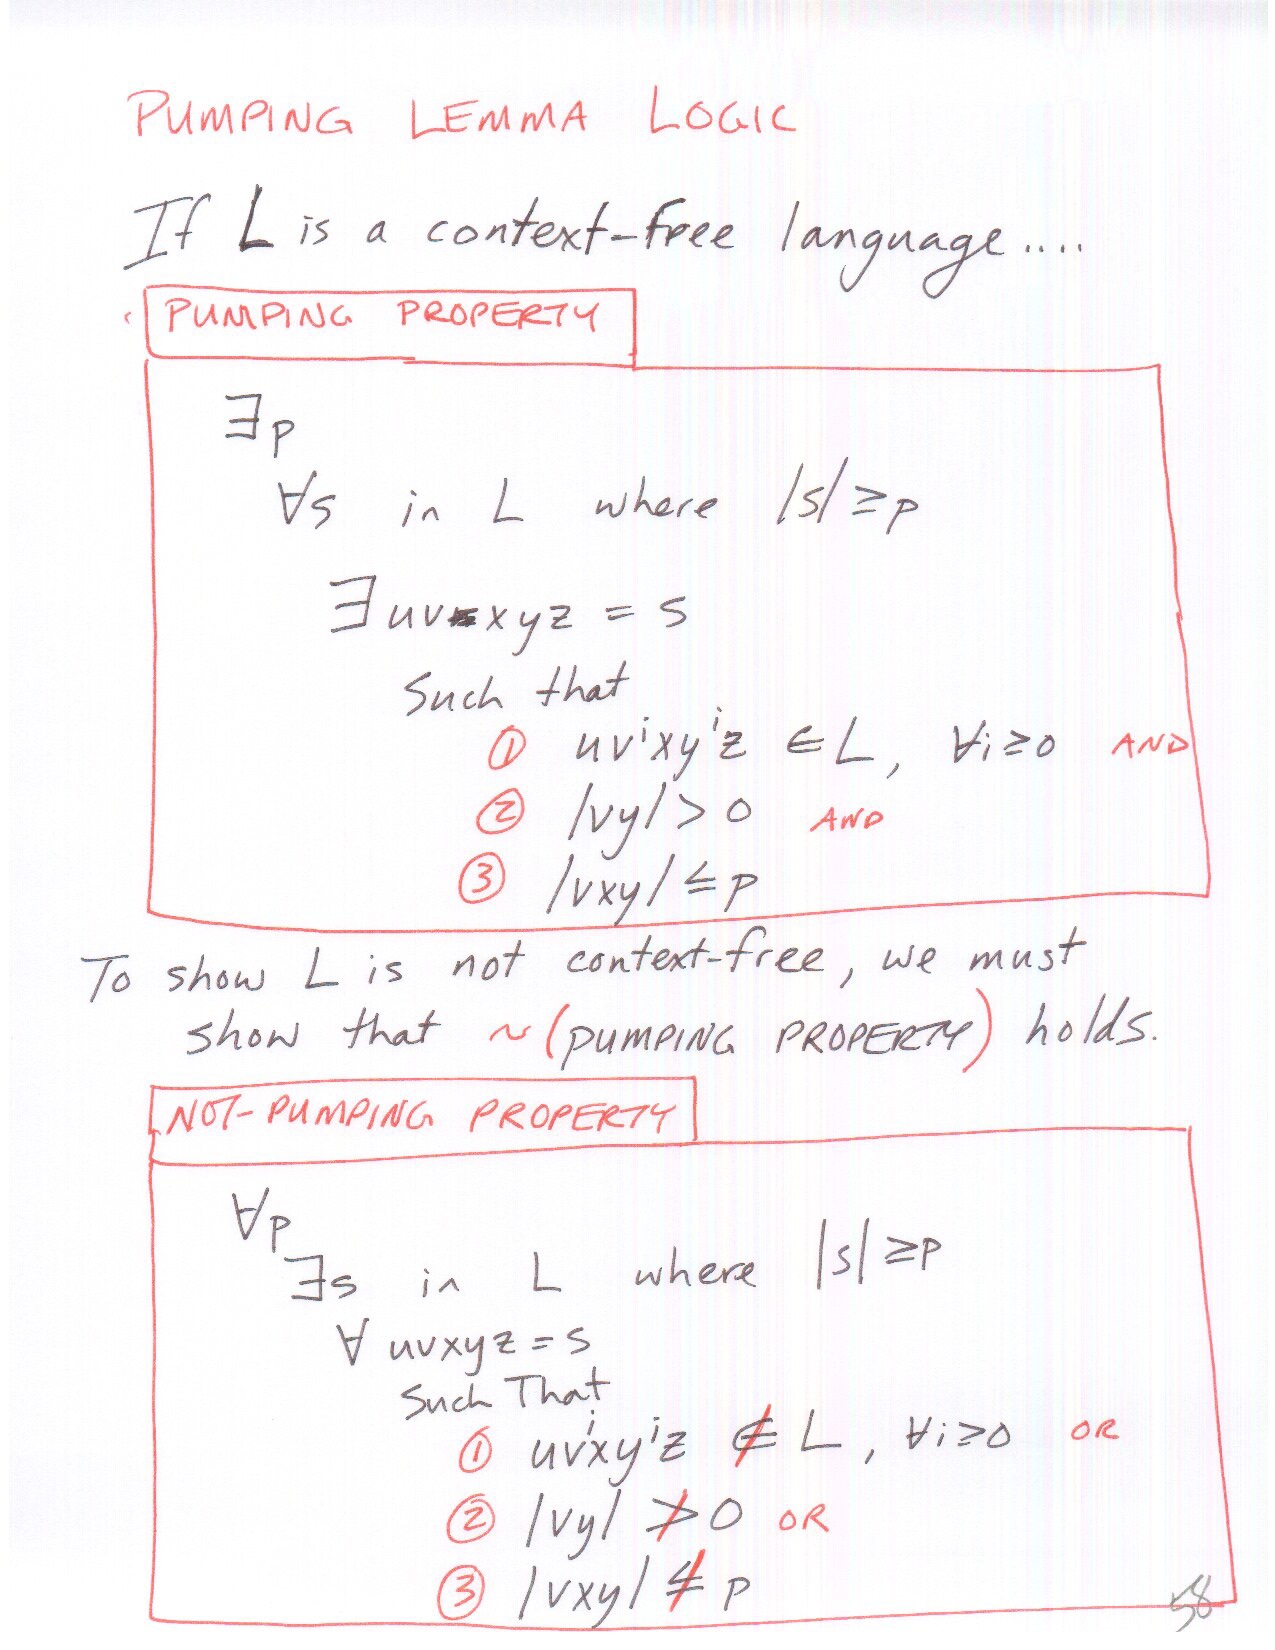 PUMPING LEMMA LOGIC
If L is a context-free language....
PUMPING PROPERTY
∃p
∀s in L where |s| ≥ p
∃ uv xyz = s
Such that
① uvⁱxyⁱz ∈ L, ∀i≥0 AND
② |vy| > 0 AND
③ |vxy| ≤ p
To show L is not context-free, we must
show that ~(PUMPING PROPERTY) holds.
NOT-PUMPING PROPERTY
∀p
∃s in L where |s| ≥ p
∀ uvxyz = s
Such That
① uvⁱxyⁱz ∉ L, ∀i≥0 OR
② |vy| ≯ 0 OR
③ |vxy| ≰ p
58